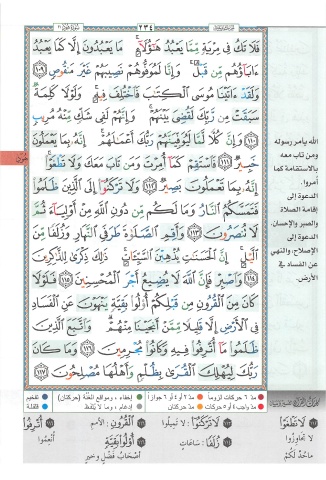 ٢٣٤
فَلَا تَكُ فِى مِرْيَةٍ مِّمَّا يَعْبُدُ هَٰٓؤُلَآءِ ۚ مَا يَعْبُدُونَ إِلَّا كَمَا يَعْبُدُ
ءَابَآؤُهُم مِّن قَبْلُ ۚ وَإِنَّا لَمُوَفُّوهُمْ نَصِيبَهُمْ غَيْرَ مَنقُوصٍ ١٠٩
وَلَقَدْ ءَاتَيْنَا مُوسَى ٱلْكِتَٰبَ فَٱخْتُلِفَ فِيهِ ۚ وَلَوْلَا كَلِمَةٌ
سَبَقَتْ مِن رَّبِّكَ لَقُضِىَ بَيْنَهُمْ ۚ وَإِنَّهُمْ لَفِى شَكٍّ مِّنْهُ مُرِيبٍ
١١٠ وَإِنَّ كُلًّا لَّمَّا لَيُوَفِّيَنَّهُمْ رَبُّكَ أَعْمَٰلَهُمْ ۚ إِنَّهُۥ بِمَا يَعْمَلُونَ
خَبِيرٌ ١١١ فَٱسْتَقِمْ كَمَآ أُمِرْتَ وَمَن تَابَ مَعَكَ وَلَا تَطْغَوْا۟ ۚ
إِنَّهُۥ بِمَا تَعْمَلُونَ بَصِيرٌ ١١٢ وَلَا تَرْكَنُوٓا۟ إِلَى ٱلَّذِينَ ظَلَمُوا۟
فَتَمَسَّكُمُ ٱلنَّارُ وَمَا لَكُم مِّن دُونِ ٱللَّهِ مِنْ أَوْلِيَآءَ ثُمَّ
لَا تُنصَرُونَ ١١٣ وَأَقِمِ ٱلصَّلَوٰةَ طَرَفَىِ ٱلنَّهَارِ وَزُلَفًا مِّنَ
ٱلَّيْلِ ۚ إِنَّ ٱلْحَسَنَٰتِ يُذْهِبْنَ ٱلسَّيِّـَٔاتِ ۚ ذَٰلِكَ ذِكْرَىٰ لِلذَّٰكِرِينَ
١١٤ وَٱصْبِرْ فَإِنَّ ٱللَّهَ لَا يُضِيعُ أَجْرَ ٱلْمُحْسِنِينَ ١١٥ فَلَوْلَا
كَانَ مِنَ ٱلْقُرُونِ مِن قَبْلِكُمْ أُو۟لُوا۟ بَقِيَّةٍ يَنْهَوْنَ عَنِ ٱلْفَسَادِ
فِى ٱلْأَرْضِ إِلَّا قَلِيلًا مِّمَّنْ أَنجَيْنَا مِنْهُمْ ۗ وَٱتَّبَعَ ٱلَّذِينَ
ظَلَمُوا۟ مَآ أُتْرِفُوا۟ فِيهِ وَكَانُوا۟ مُجْرِمِينَ ١١٦ وَمَا كَانَ
رَبُّكَ لِيُهْلِكَ ٱلْقُرَىٰ بِظُلْمٍ وَأَهْلُهَا مُصْلِحُونَ ١١٧
الله يأمر رسوله
ومن تاب معه
بالاستقامة كما
أمروا.
الدعوة إلى
إقامة الصلاة
والصبر والإحسان.
الدعوة إلى
الإصلاح، والنهي
عن الفساد في
الأرض.
مد ٦ حركات لزوما
مد ٢ أو ٤ أو ٦ جوازا
إخفاء، ومواقع الغنّة (حركتان)
تفخيم
مد واجب ٤ أو ٥ حركات
مد حركتان
إدغام، وما لا يُلفظ
قلقلة
لَا تَطْغَوْا
لا تجاوزوا
ما حُدَّ لكم
لَا تَرْكَنُوا: لا تميلوا
زُلَفًا: ساعات
الْقُرُونِ: الأمم
أُولُوا بَقِيَّةٍ
أصحاب فضل وخير
أُتْرِفُوا
أُنعموا